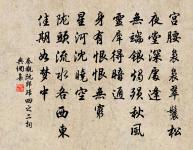 宮腰裊裊翠鬟松
夜堂深處逢
無端銀燭殞秋風
靈犀得暗通
身有恨恨無窮
星河沈曉空
隴頭流水各西東
佳期如夢中
秦觀阮郎歸四之三詞